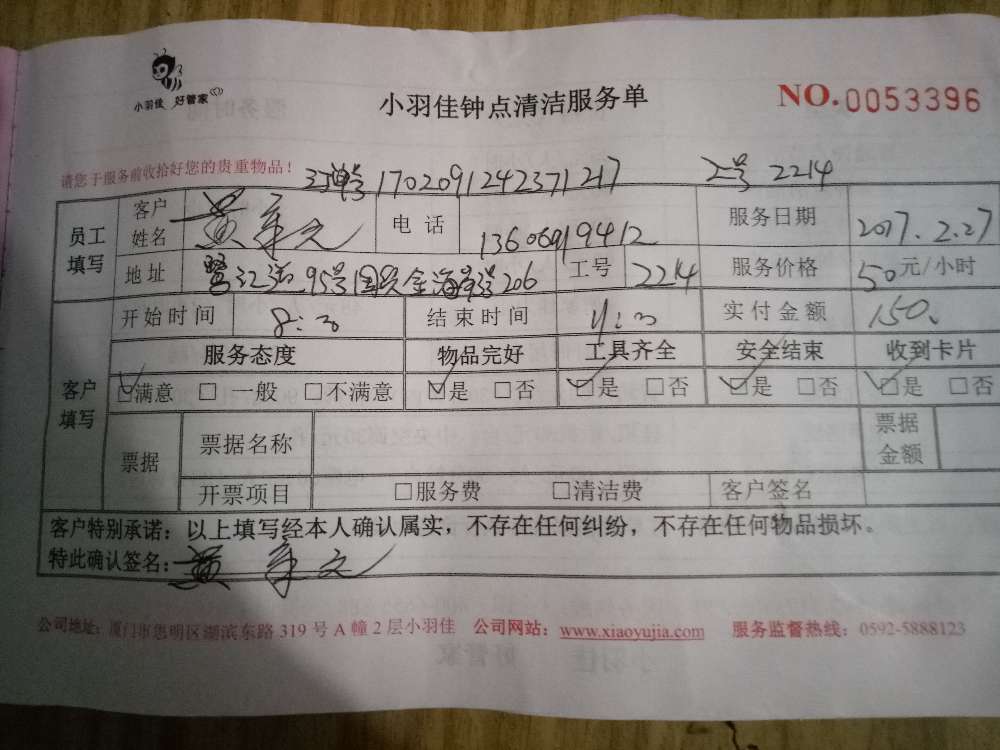 小羽佳 好管家
小羽佳钟点清洁服务单
NO.0053396
请您于服务前收拾好您的贵重物品！
订单号1702091242371217 工号 2214
员工填写 客户姓名 黄章文 电话 13606919412 服务日期 2017.2.27
地址 鹭江道95号国贸金海岸 206 工号 2214 服务价格 50元/小时
客户填写 开始时间 8:30 结束时间 11:30 实付金额 150.
服务态度 物品完好 工具齐全 安全结束 收到卡片
☑满意 □一般 □不满意 ☑是 □否 ☑是 □否 ☑是 □否 ☑是 □否
票据 票据名称 票据金额
开票项目 □服务费 □清洁费 客户签名
客户特别承诺：以上填写经本人确认属实，不存在任何纠纷，不存在任何物品损坏。
特此确认签名：黄章文
公司地址：厦门市思明区湖滨东路 319 号 A 幢 2 层小羽佳 公司网站：www.xiaoyujia.com 服务监督热线：0592-5888123